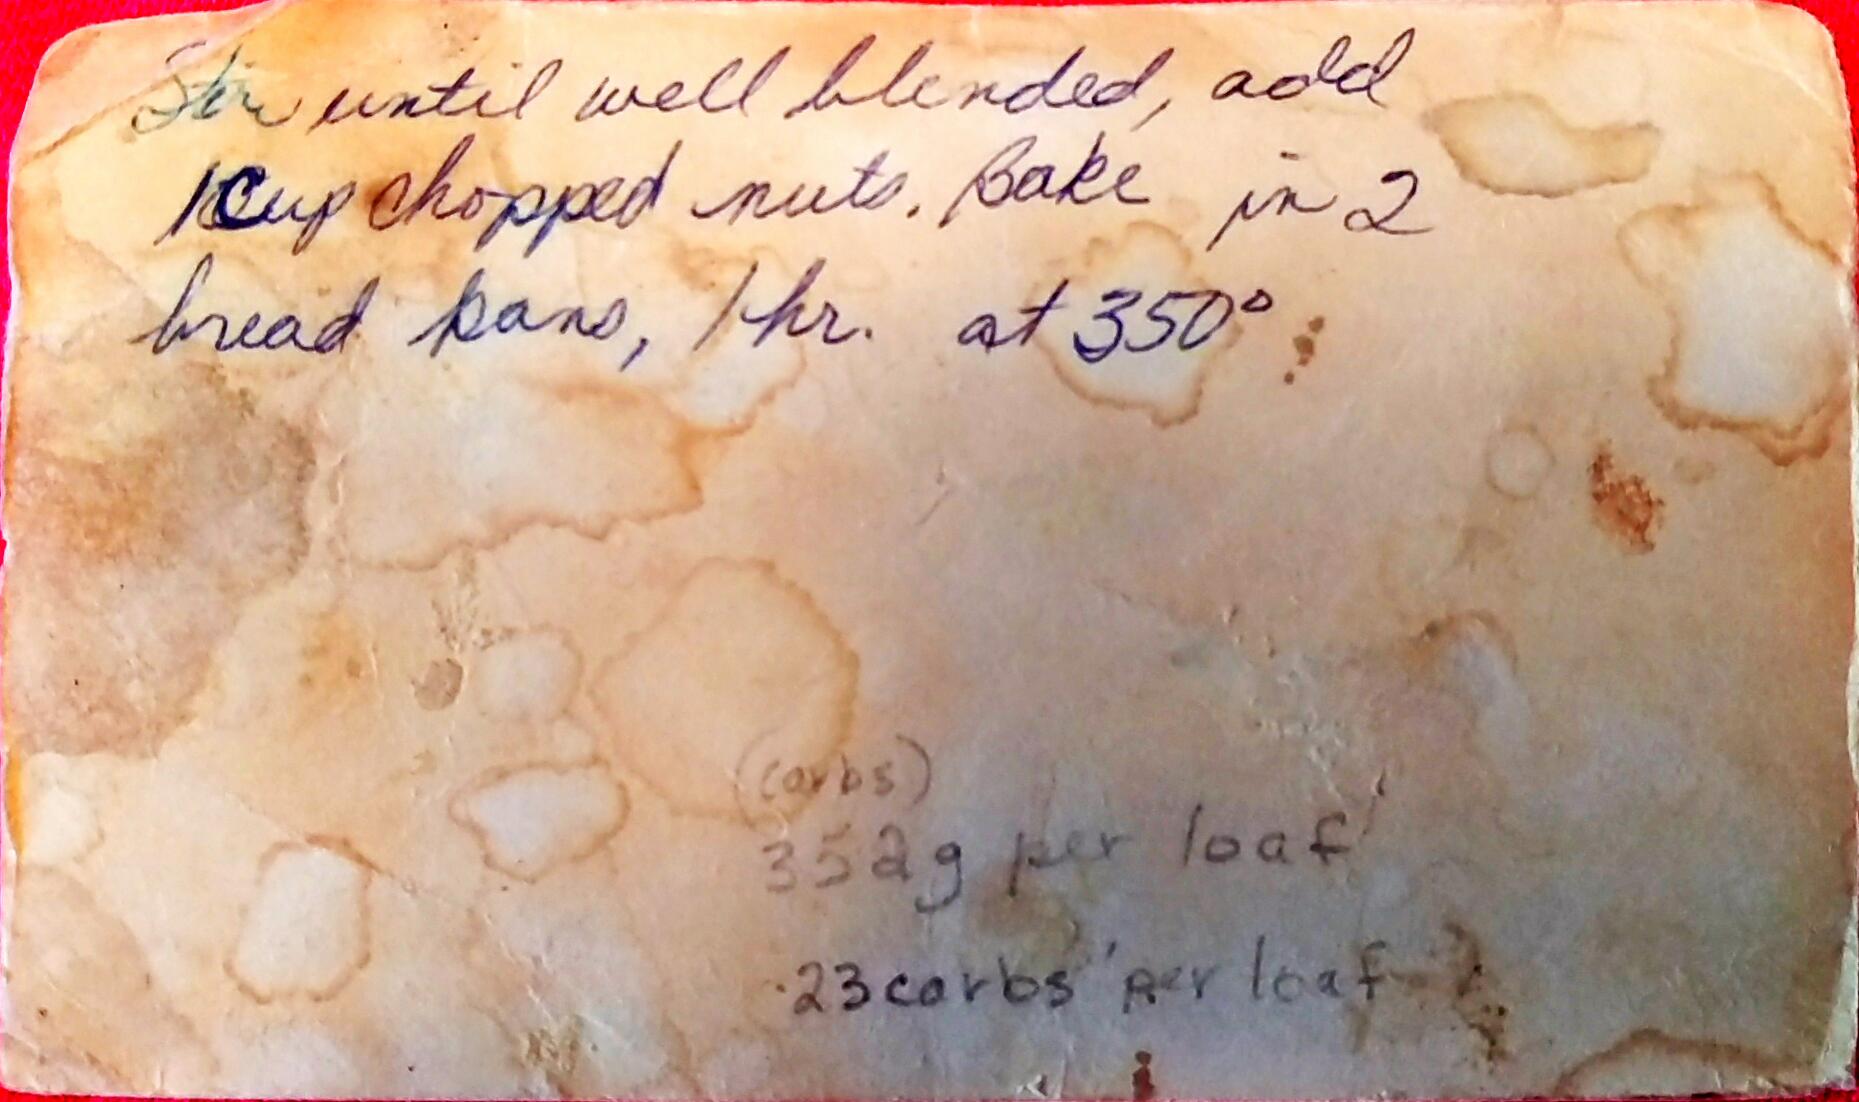 Stir until well blended, add
1 Cup chopped nuts. Bake in 2
bread pans, 1 hr. at 350°
(carbs)
352g per loaf
23 carbs per loaf